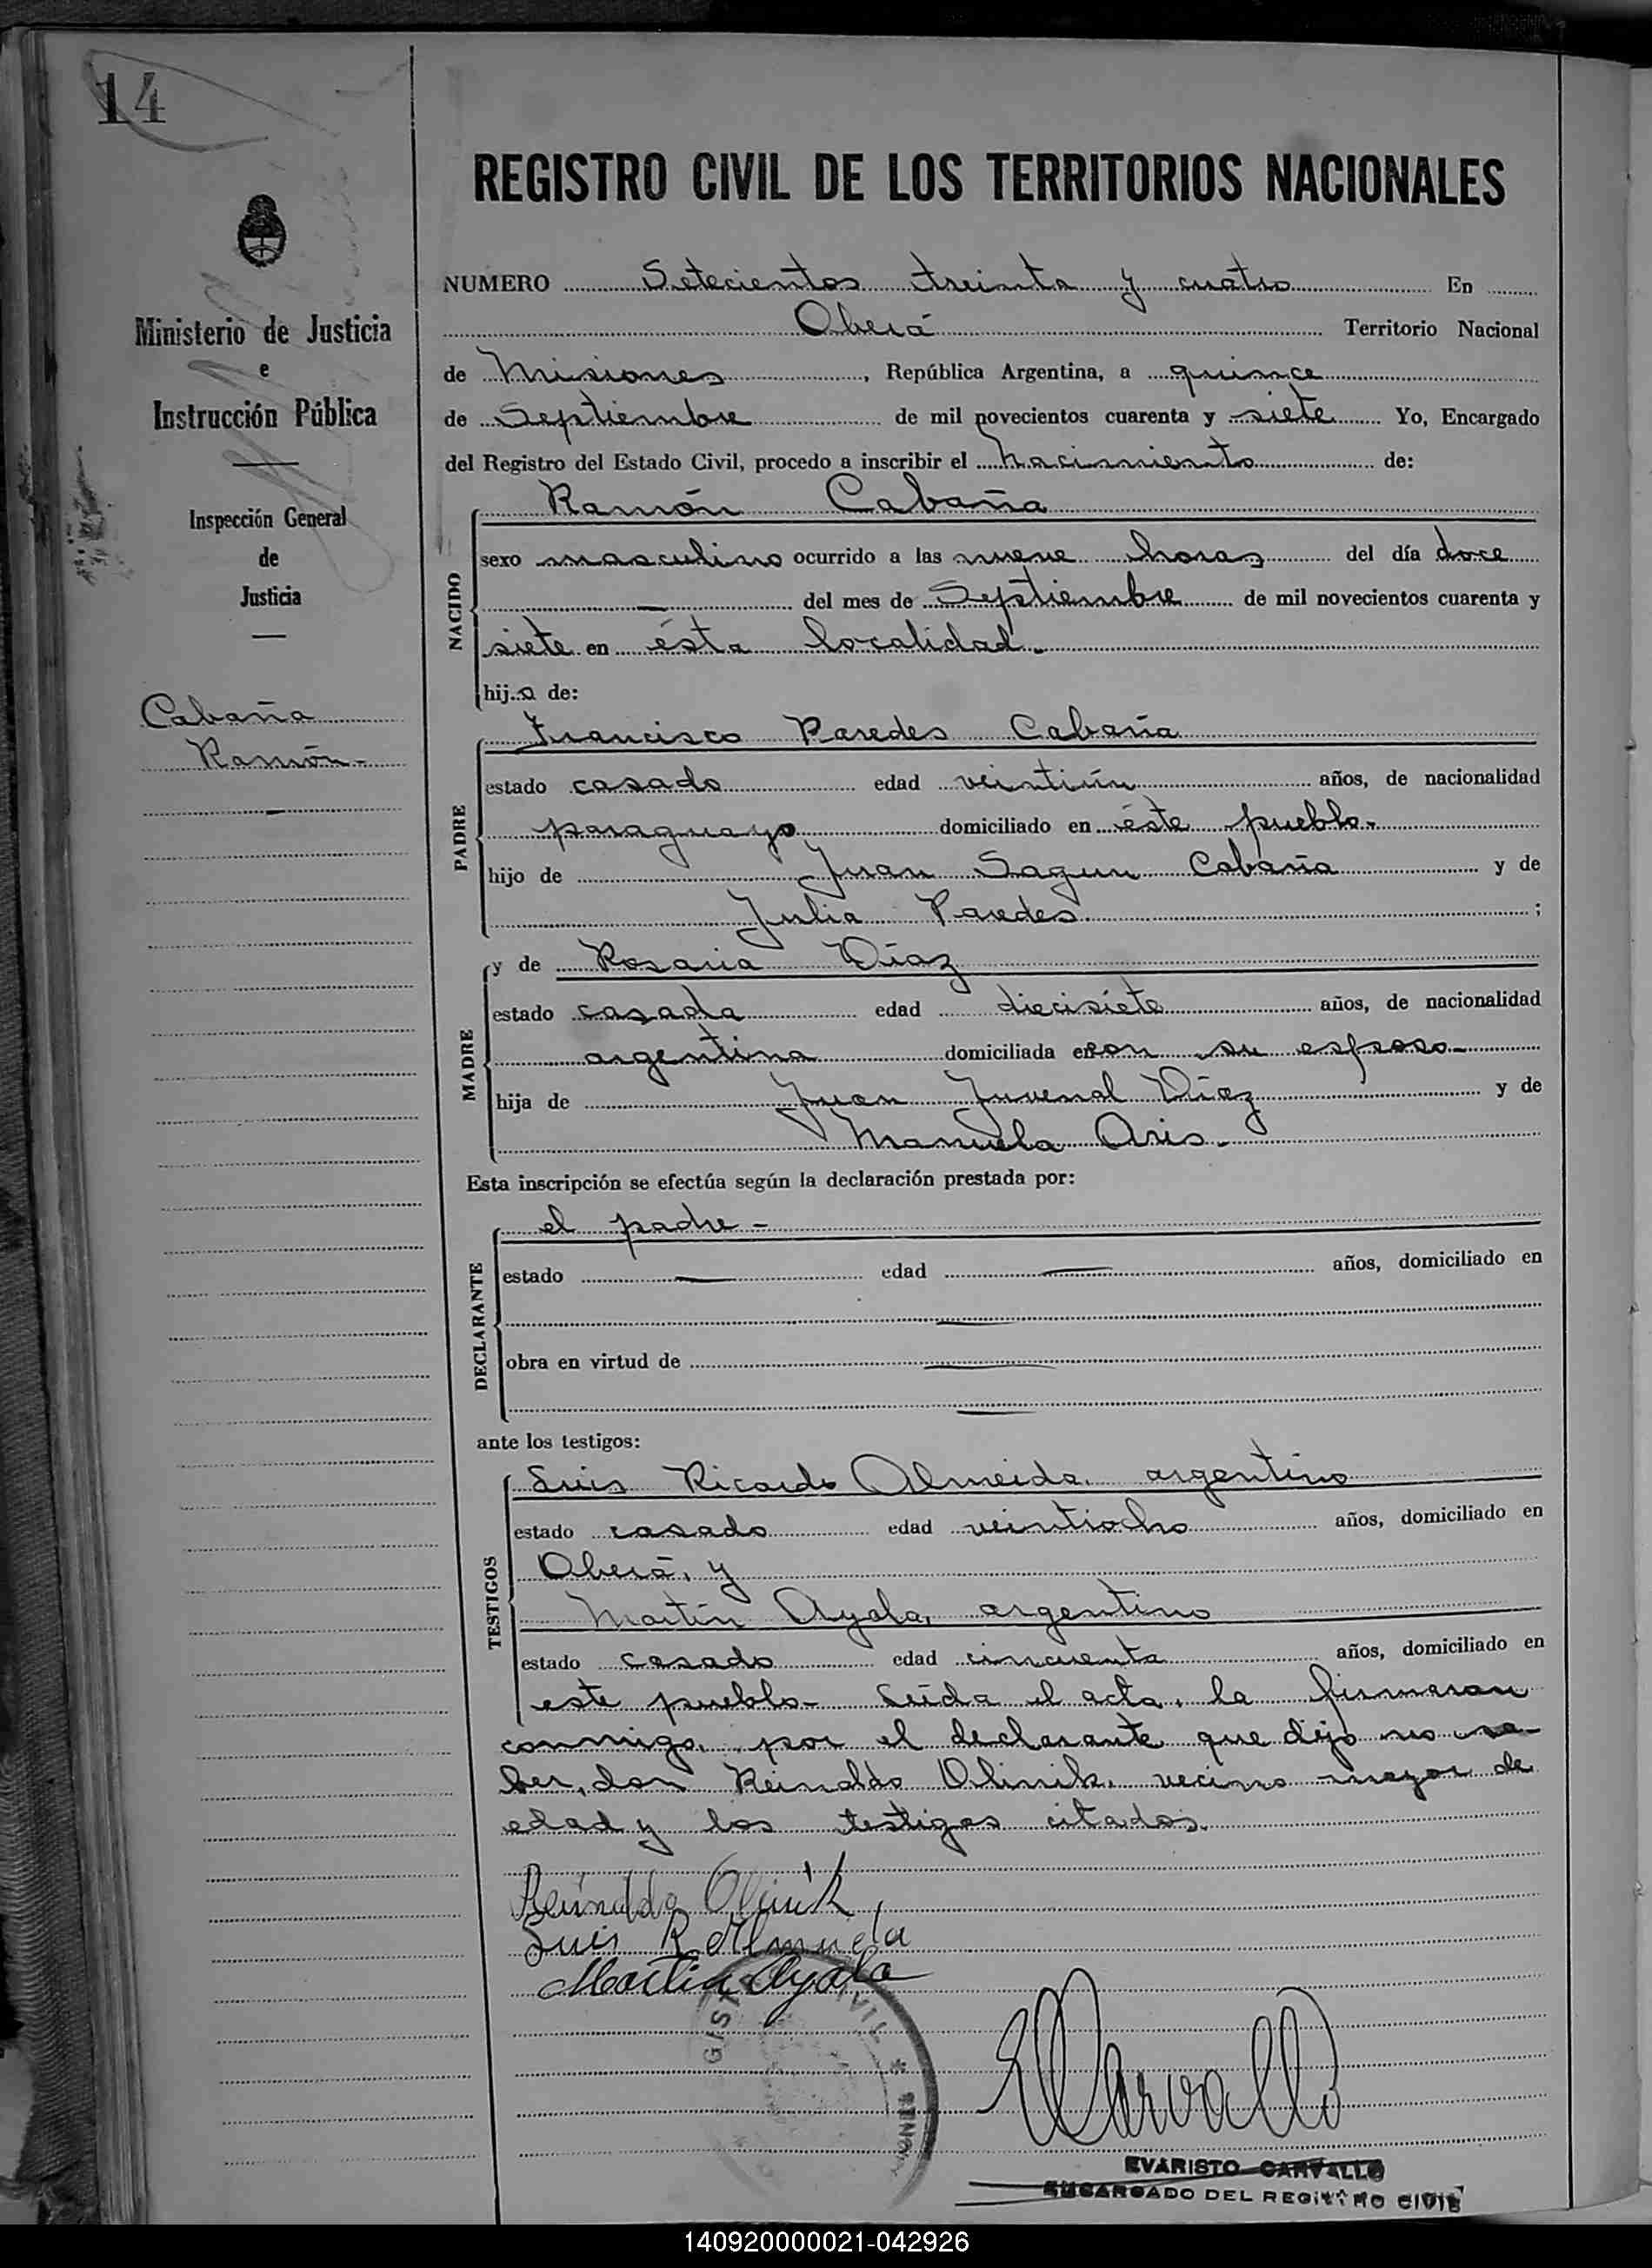 14
REGISTRO CIVIL DE LOS TERRITORIOS NACIONALES
Ministerio de Justicia
e
Instrucción Pública
Inspección General
de
Justicia
Cabaña
Ramón.-
NUMERO Setecientos treinta y cuatro En
Oberá Territorio Nacional
de Misiones, República Argentina, a quince
de Septiembre de mil novecientos cuarenta y siete Yo, Encargado
del Registro del Estado Civil, procedo a inscribir el nacimiento de:
NACIDO
Ramón Cabaña
sexo masculino ocurrido a las nueve horas del día doce
del mes de Septiembre de mil novecientos cuarenta y
siete en ésta localidad.
hijo de:
PADRE
Francisco Paredes Cabaña
estado casado edad veintiún años, de nacionalidad
paraguayo domiciliado en éste pueblo.-
hijo de Juan Sagun Cabaña y de
Julia Paredes ;
MADRE
y de Rosaria Díaz
estado casada edad diecisiete años, de nacionalidad
argentina domiciliada en con su esposo-
hija de Juan Juvenal Díaz y de
Manuela Aris.-
Esta inscripción se efectúa según la declaración prestada por:
DECLARANTE
el padre -
estado — edad — años, domiciliado en
—
obra en virtud de —
—
ante los testigos:
TESTIGOS
Luis Ricardo Almeida, argentino
estado casado edad veintiocho años, domiciliado en
Oberá, y
Martín Ayala, argentino
estado casado edad cincuenta años, domiciliado en
este pueblo- Leída el acta, la firmaron
conmigo, por el declarante que dijo no sa-
ber, don Reinaldo Olinik, vecino mayor de
edad y los testigos citados.
Reinaldo Olinik
Luis R. Almeida
Martin Ayala
E Carvallo
EVARISTO CARVALLO
ENCARGADO DEL REGISTRO CIVIL
140920000021-042926